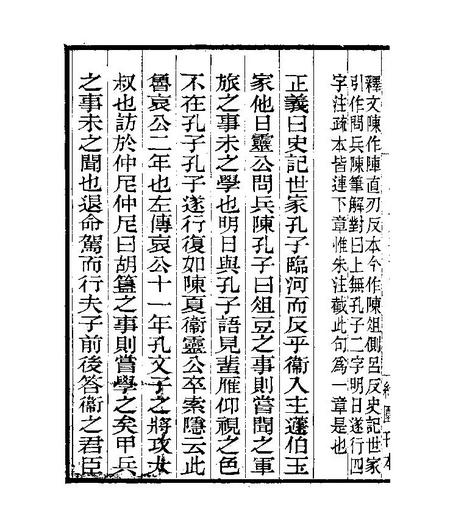 釋文陳作陣直刃反本今作陳俎側呂反史記世家
引作問兵陳筆解對曰上無孔子二字明日遂行四
字注疏本皆連下章惟朱注截此句爲一章是也
正義曰史記世家孔子臨河而反乎衛入主蘧伯玉
家他日靈公問兵陳孔子曰俎豆之事則嘗聞之軍
旅之事未之學也明日與孔子語見蜚雁仰視之色
不在孔子孔子遂行復如陳夏衛靈公卒索隱云此
魯哀公二年也左傳哀公十一年孔文子之將攻大
叔也訪於仲尼仲尼曰胡簋之事則嘗學之矣甲兵
之事未之聞也退命駕而行夫子前後答衛之君臣